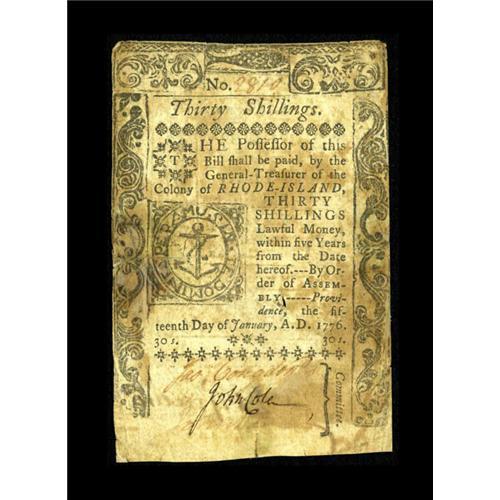 No. 
Thirty Shillings.
THE Possessor of this
Bill shall be paid, by the
General-Treasurer of the
Colony of RHODE-ISLAND,
THIRTY
SHILLINGS
Lawful Money,
within five Years
from the Date
hereof.---By Or-
der of ASSEM-
BLY.-----Provi-
dence, the fif-
teenth Day of January, A.D. 1776.
30 s. 30 s.
John Cole
Committee.